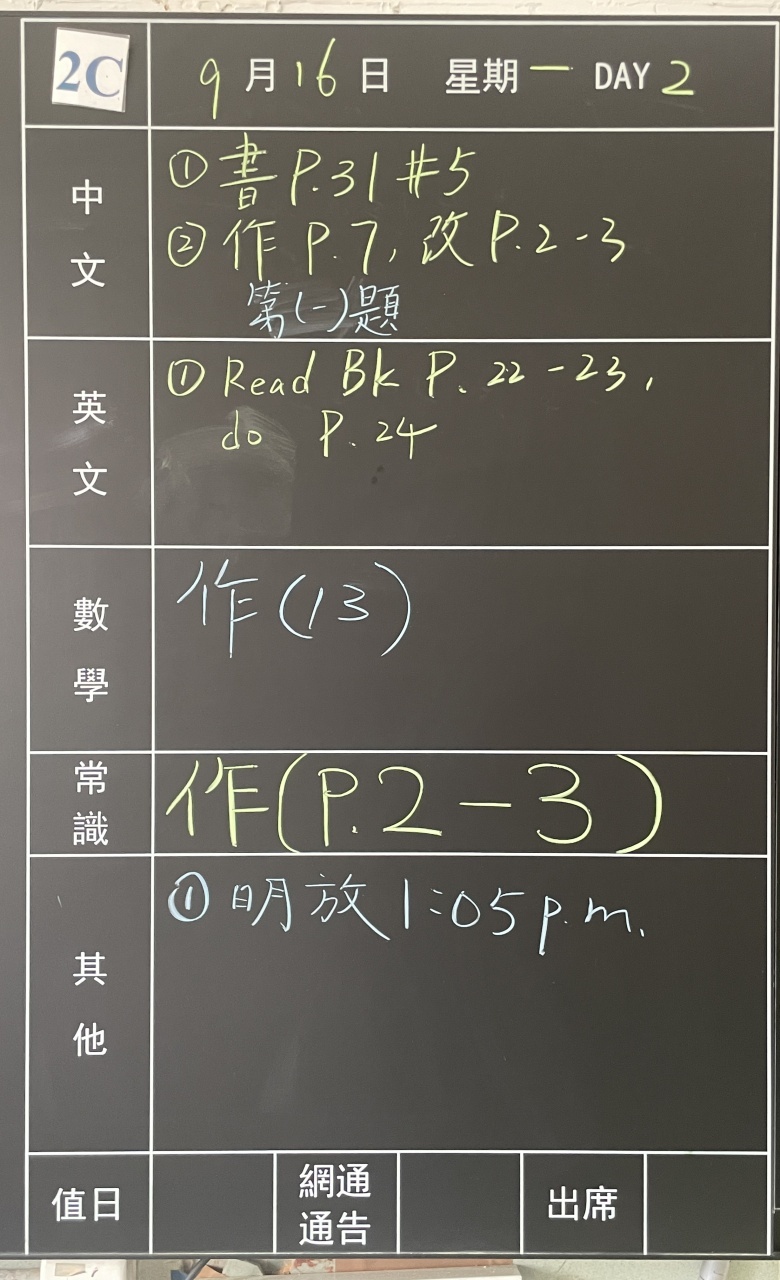 2C
9月16日 星期一 DAY 2
中文
①書P.31 #5
②作P.7, 改P.2-3
第(一)題
英文
①Read Bk P. 22-23,
do P. 24
數學
作(13)
常識
作(P.2-3)
其他
①明放1:05 p.m.
值日
網通
通告
出席